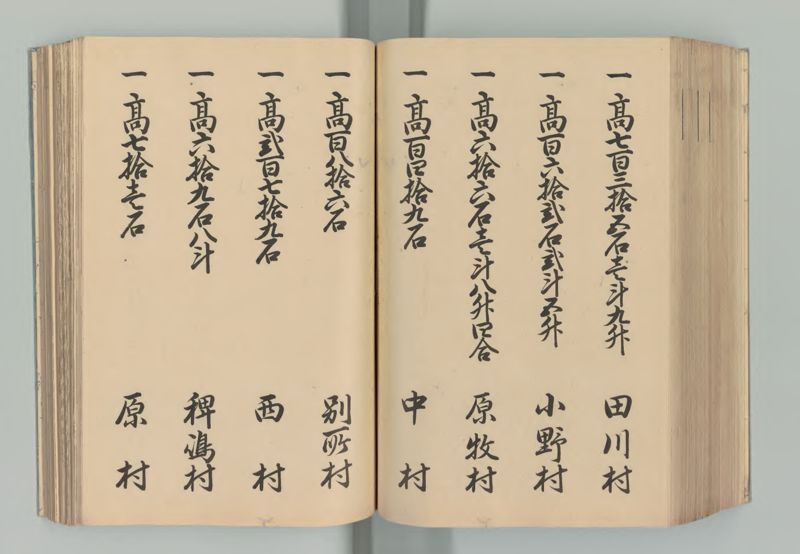 一高七百三拾五石壱斗九升 田川村
一高百六拾弐石弐斗五升 小野村
一高六拾六石壱斗八升四合 原牧村
一高百四拾九石 中村
一高百八拾六石 別所村
一高弐百七拾九石 西村
一高六拾九石八斗 稗嶋村
一高七拾壱石 原村